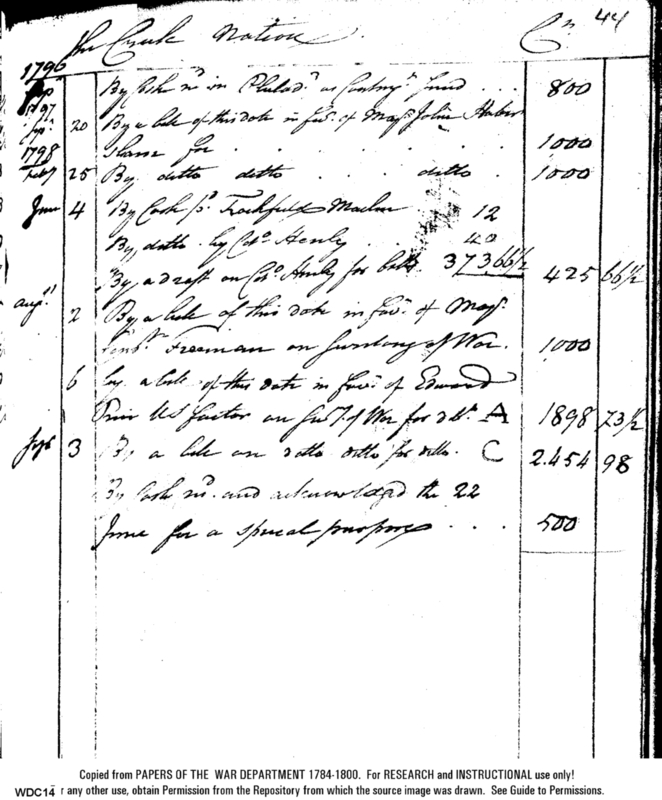 44
the Creek Nation Cr
1796
Sep By Cash rd in Philada as Contngt fund . . . 800
1797
Sepr 20 By a bill of this date in favr of Majr John Haber
1798 sham for . . . . . 1000
Feby 25 By ditto ditto . . . ditto . 1000
June 4 By Cash pr 12
By ditto by Colo Henly . . . 40
By a draft on Colo Henly for balle 373,66½ 425 66½
augt
2 By a bill of this date in favr of Majr
Constt Freeman on Secretary of War. 1000
6 by a bill of this date in favr of Edward
Price US factor on Secy of War for dbt. A 1898 73½
Sept 3 By a bill on ditto ditto for ditto. C 2.454 98
By Cash rd. and acknowledged the 22
June for a special purpose . . . . 500
Copied from PAPERS OF THE WAR DEPARTMENT 1784-1800. For RESEARCH and INSTRUCTIONAL use only!
WDC14 r any other use, obtain Permission from the Repository from which the source image was drawn. See Guide to Permissions.